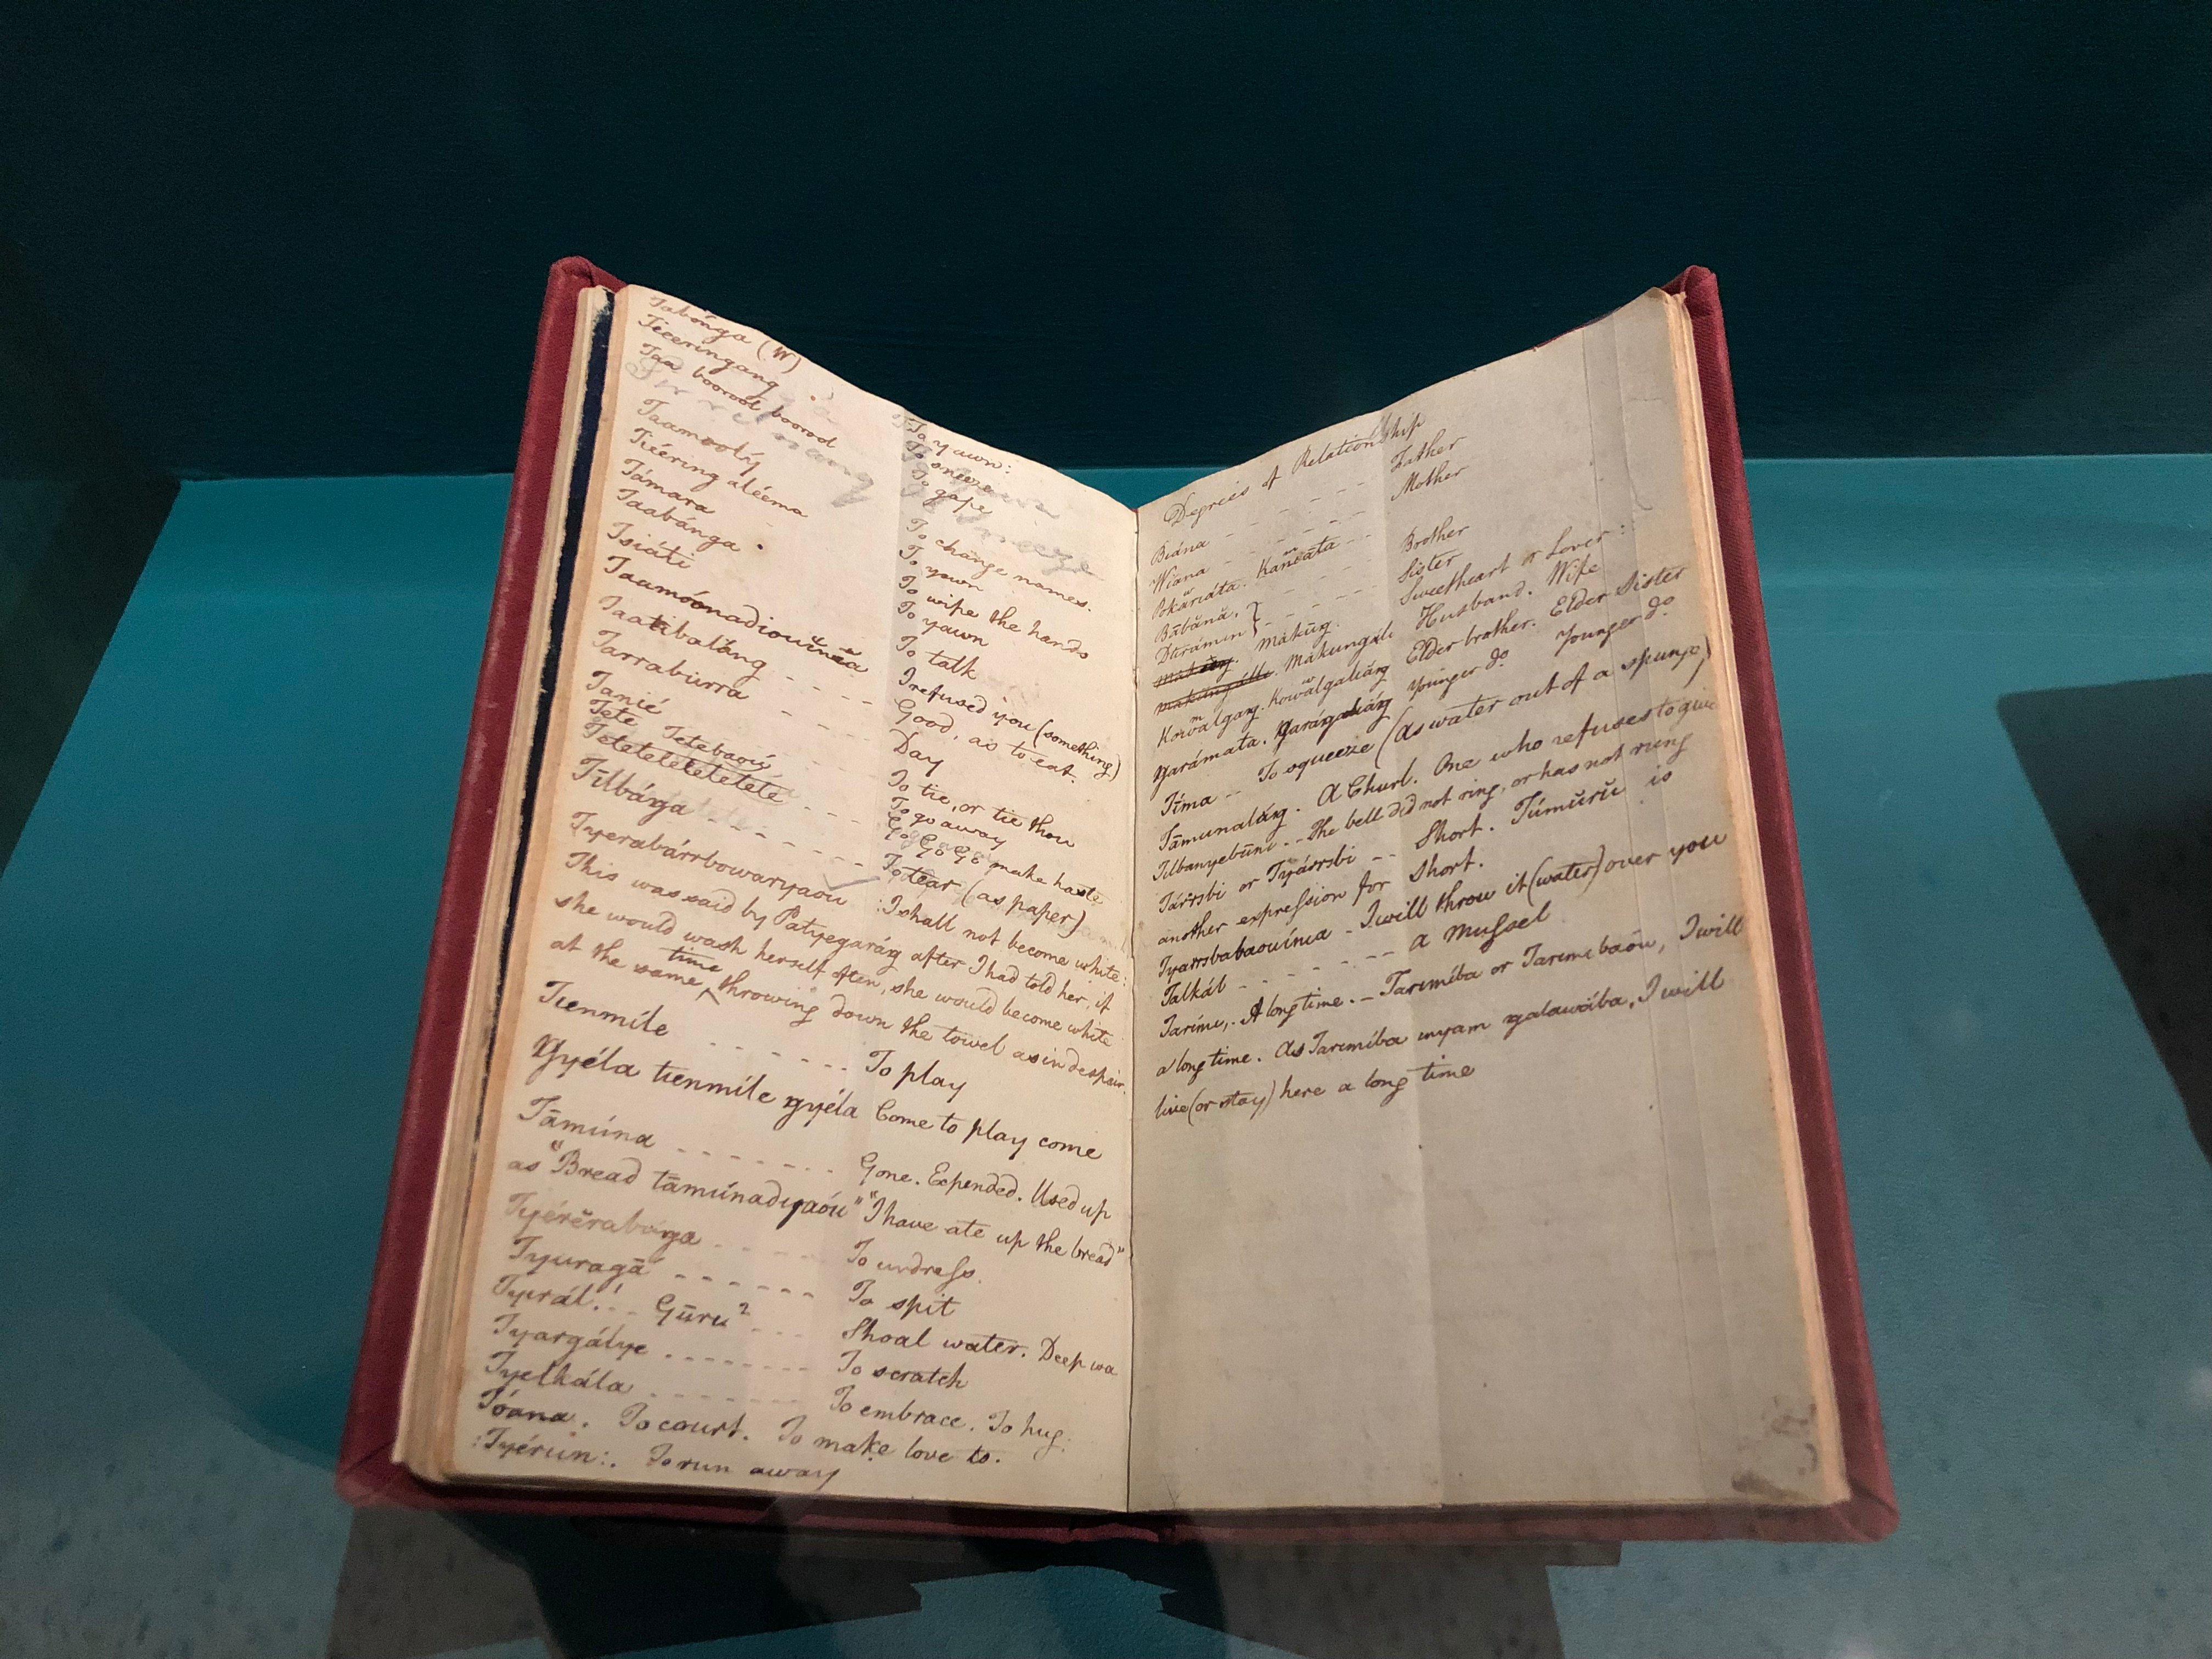 Tabónga (W) To yawn:
Tieeringang To sneeze
Taa boorod boorod To gape
Taamooly To change names.
Tiéering aléema To yawn
Támara To wipe the hands
Taabánga . To yawn
Tsiáti To talk
Taamóonadiouïnïa I refused you (something)
Taatibaláng - - - - Good, as to eat.
Tarraburra - - - Day
Tanié To tie, or tie thou
Tete Tetebaouí To go away
Tetetetetetetete - - - Go Go Go make haste
Tilbánga - - - - - - To tear (as paper)
Tyerabárrbowaryaou :I shall not become white:
This was said by Patyegaráng after I had told her, if
she would wash herself often, she would become white
at the same time throwing down the towel as in despair.
Tienmíle - - - - - - To play
Ŋyéla tienmíle ŋyéla Come to play come
Tāmúna - - - - - - - Gone. Expended. Used up
as "Bread tāmúnadyaóu" "I have ate up the bread"
Tyérĕrabárŋa - - - - To undress.
Tyuragā - - - - - - To spit
Tyirál! - - Gūru 2 - - - Shoal water. Deep wa
Tyargálye - - - - - - - - To scratch
Tyelkála - - - - - - To embrace. To hug.
Tóana. To court. To make love to.
:Tyérun:. To run away
Degrees of Relationship
Biána - - - - - - Father
Wiána - - - - - - Mother
Bokārιáta. Kanιăta - - Brother
Bābŭnă,
Durúmin } - - - - - Sister
Makūŋ. Sweetheart or Lover:
Makungali Husband. Wife
Kowalgaŋ. Kowălgaliáŋ Elder brother. Elder Sister
Ŋarámata. Ŋaráŋaliáŋ Younger do Younger do
Tíma - - To squeeze (As water out of a spunge)
Tāmunaláŋ. A Churl. One who refuses to give
Tilbanyebūni - - The bell did not ring, or has not rung
Tárrsbi or Tyárrsbi - - Short. Túmŭrŭ is
another expression for short.
Tyarrsbabaouínιa - I will throw it (water) over you
Talkál - - - - - - - - a Mussel
Tarímι,. A long time. - Tarιmíba or Tarιmιbaōu, I will
a long time. As Tarιmíba inyam ŋalawába, I will
live (or stay) here a long time